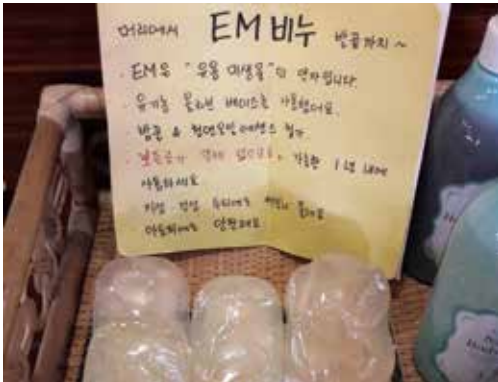 머리에서 EM 비누 발끝까지 ~
· EM은 "유용 미생물"의 약자입니다.
· 유기농 베이스를 사용했어요.
· 첨가
· 방부제가 전혀 없으므로, 가능한 1년 내에
사용하세요
지성·건성 두피에도
아토피에도 안전해요